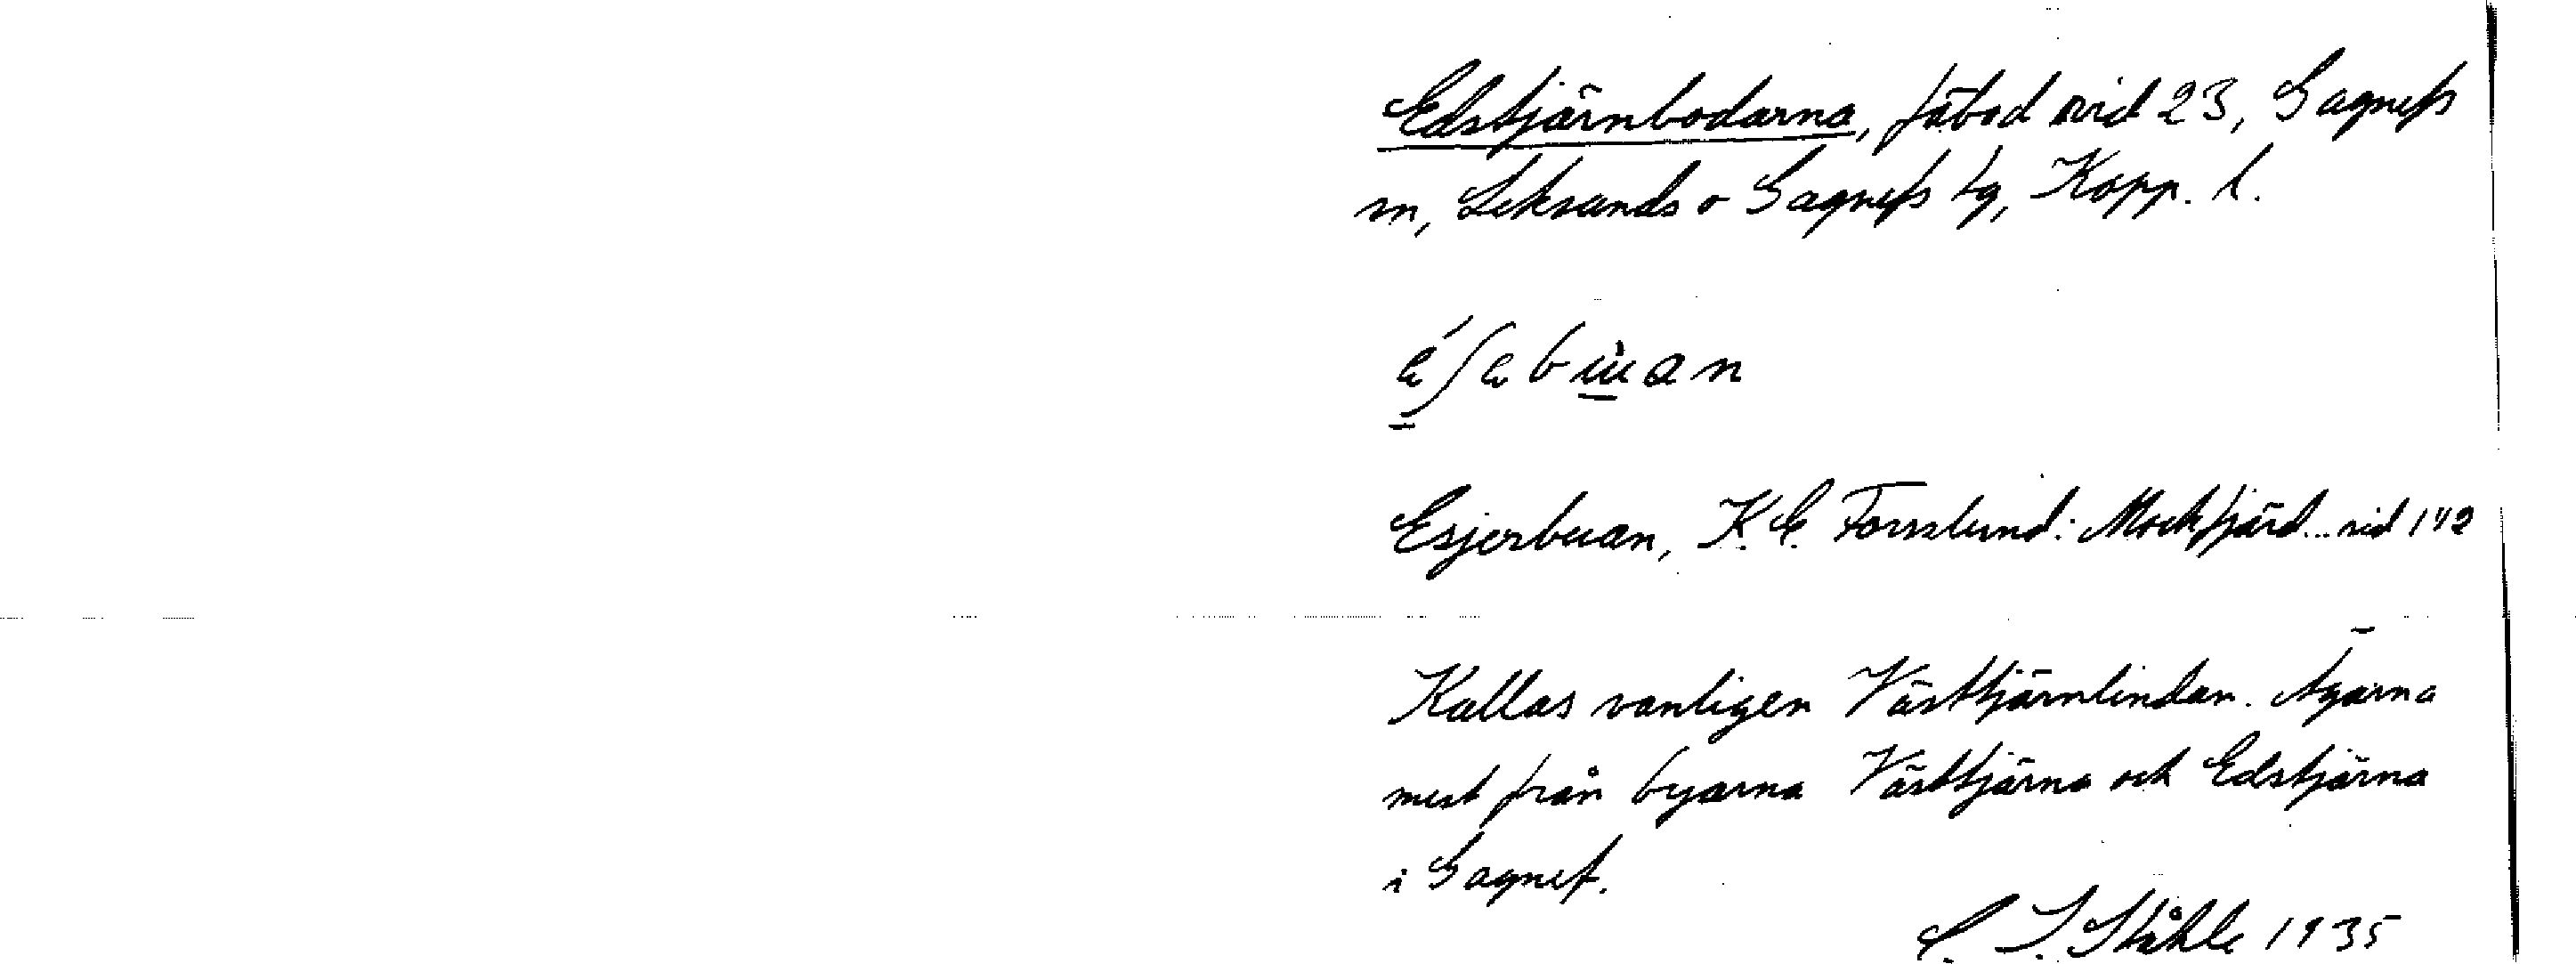 Edstjärnbodarna, fäbod vid 23, Gagnefs
sn, Leksands o Gagnefs tg, Kopp. l.
Esjerbuan, K. E. Forsslund: Mockfjärd... sid 142
Kallas vanligen Västtjärnlindan. Ägarna
mest från byarna Västtjärna och Edstjärna
i Gagnef.
C. I. Ståhle 1935